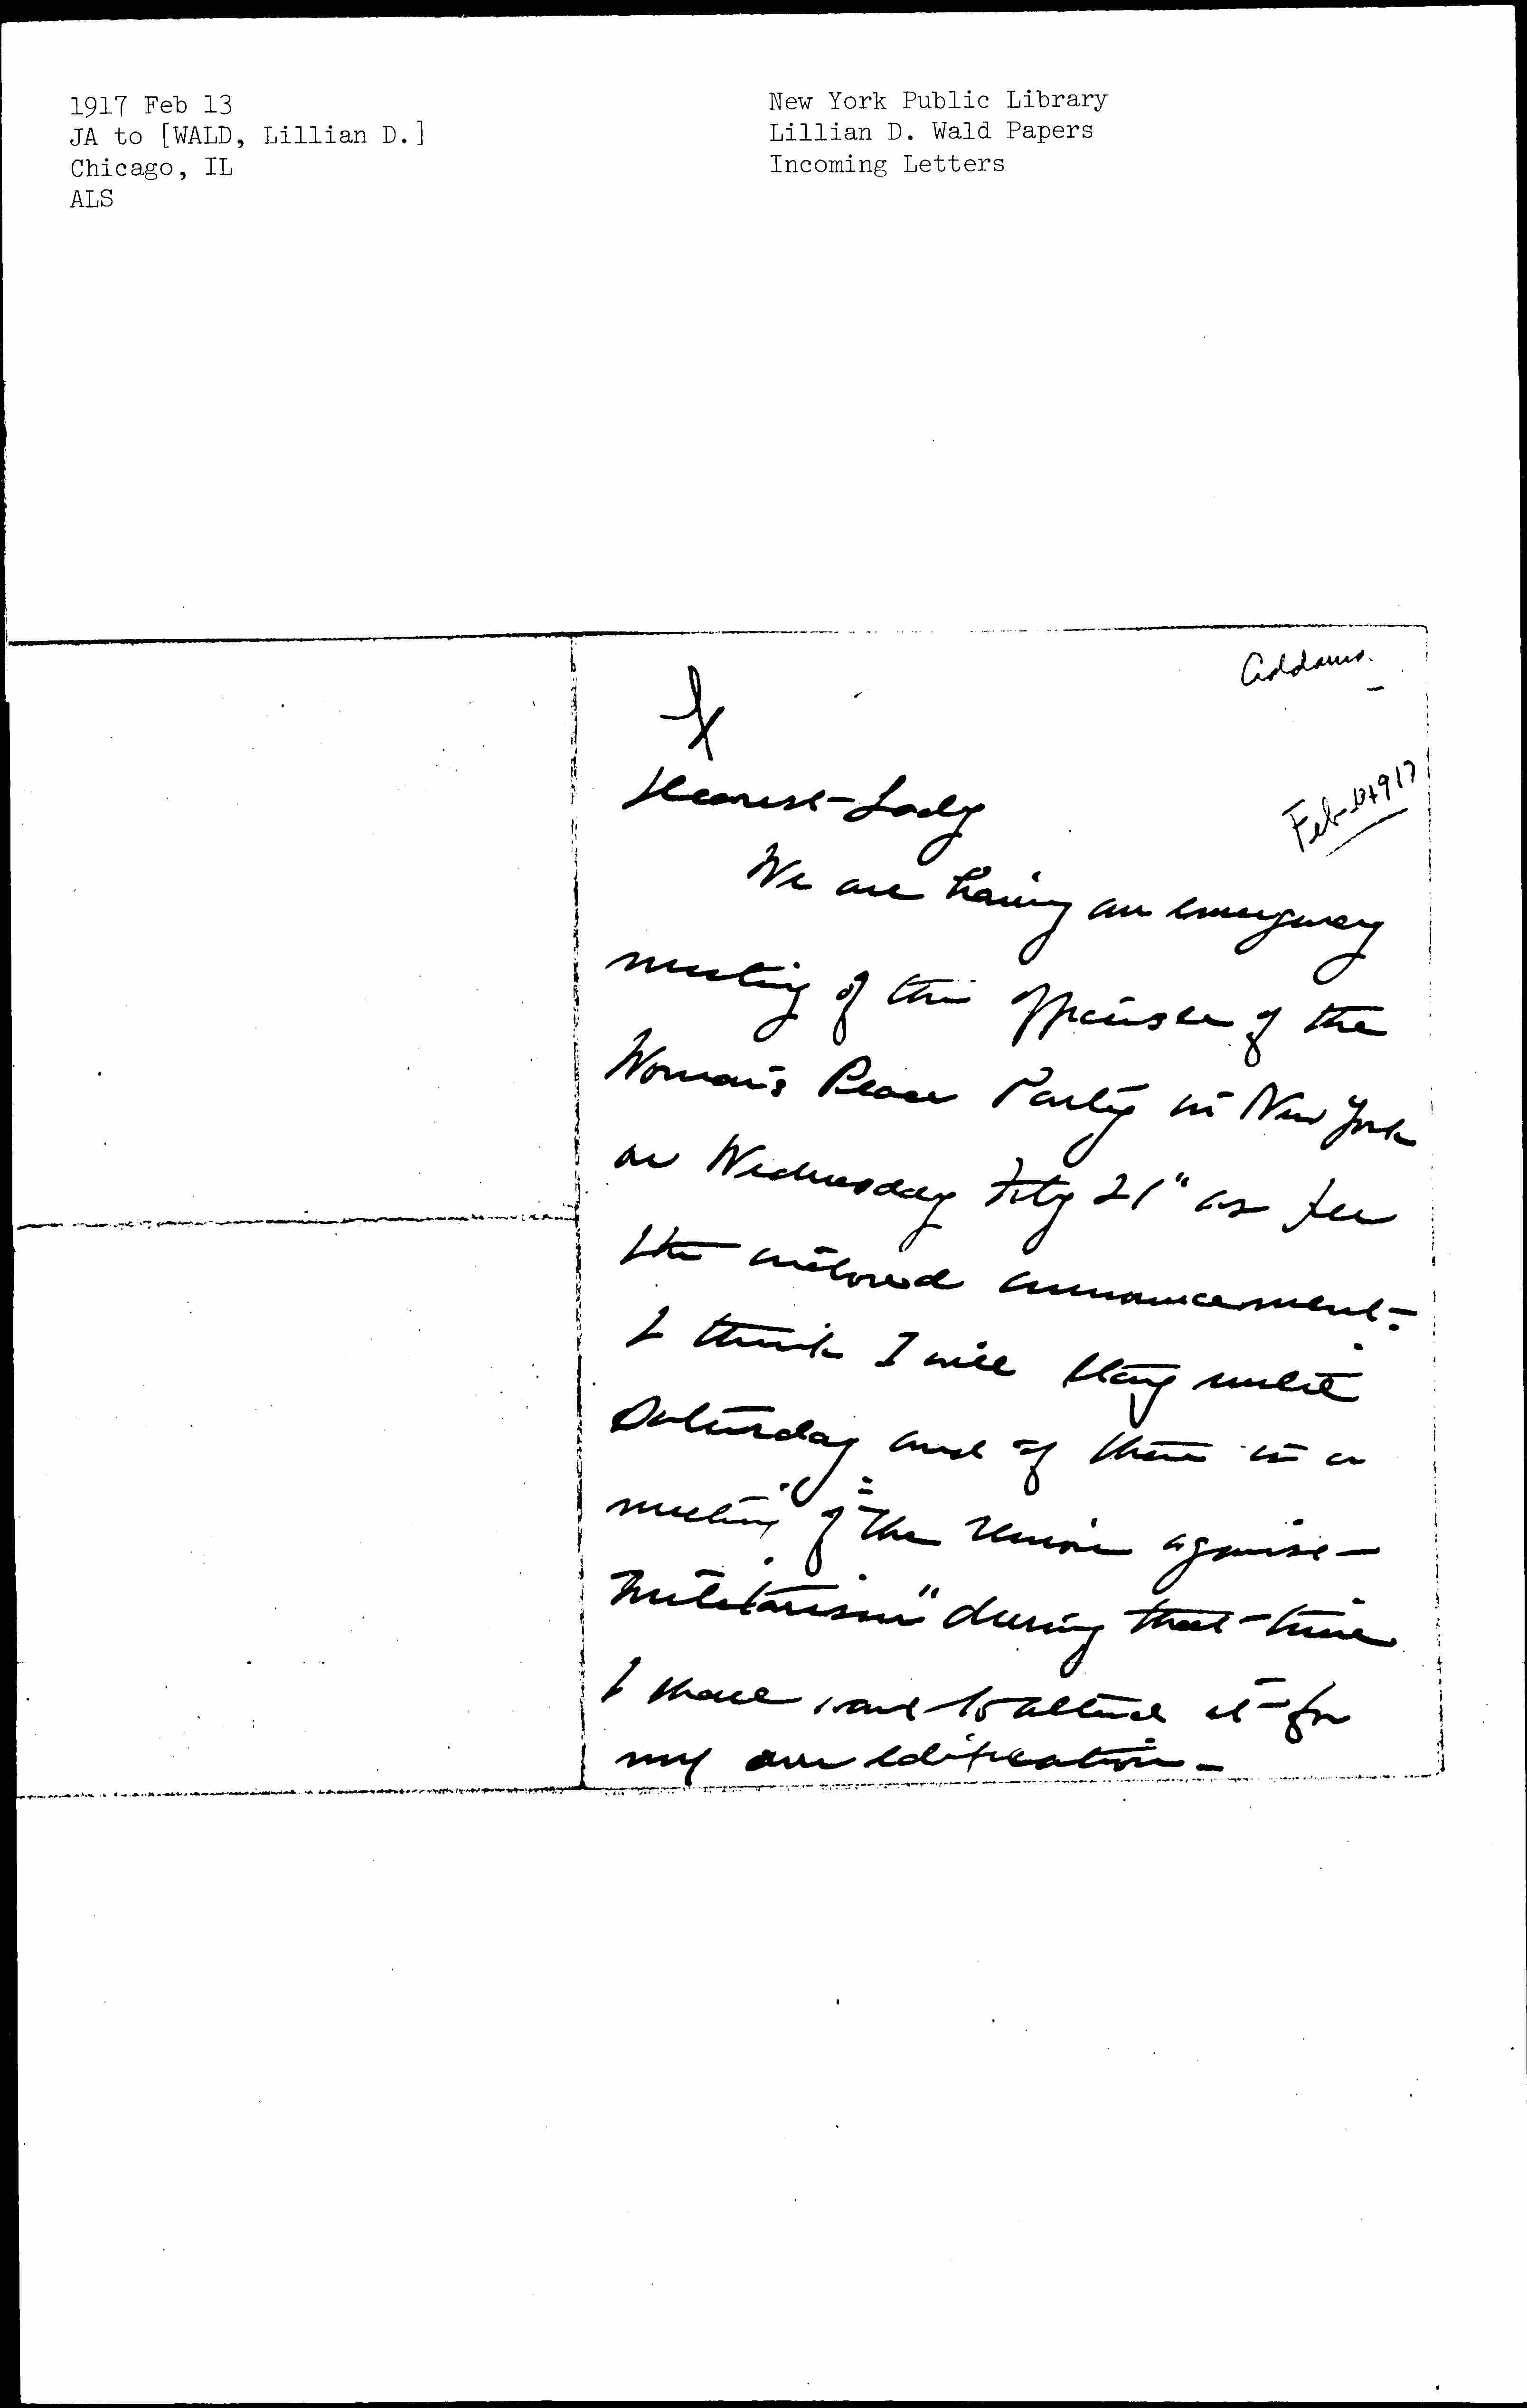 1917 Feb 13
JA to [WALD, Lillian D.]
Chicago, IL
ALS
New York Public Library
Lillian D. Wald Papers
Incoming Letters
Addams.
Feb 13 1917
Dearest Lady
We are having an emergency
meeting of the officers of the
Woman's Peace Party in New York
on Wednesday Feby 21" as per
the enclosed announcement.
I think I will stay until
Saturday and if there is a
meeting of "the Union against
Militarism" during that time
I should want to attend it for
my own edification -